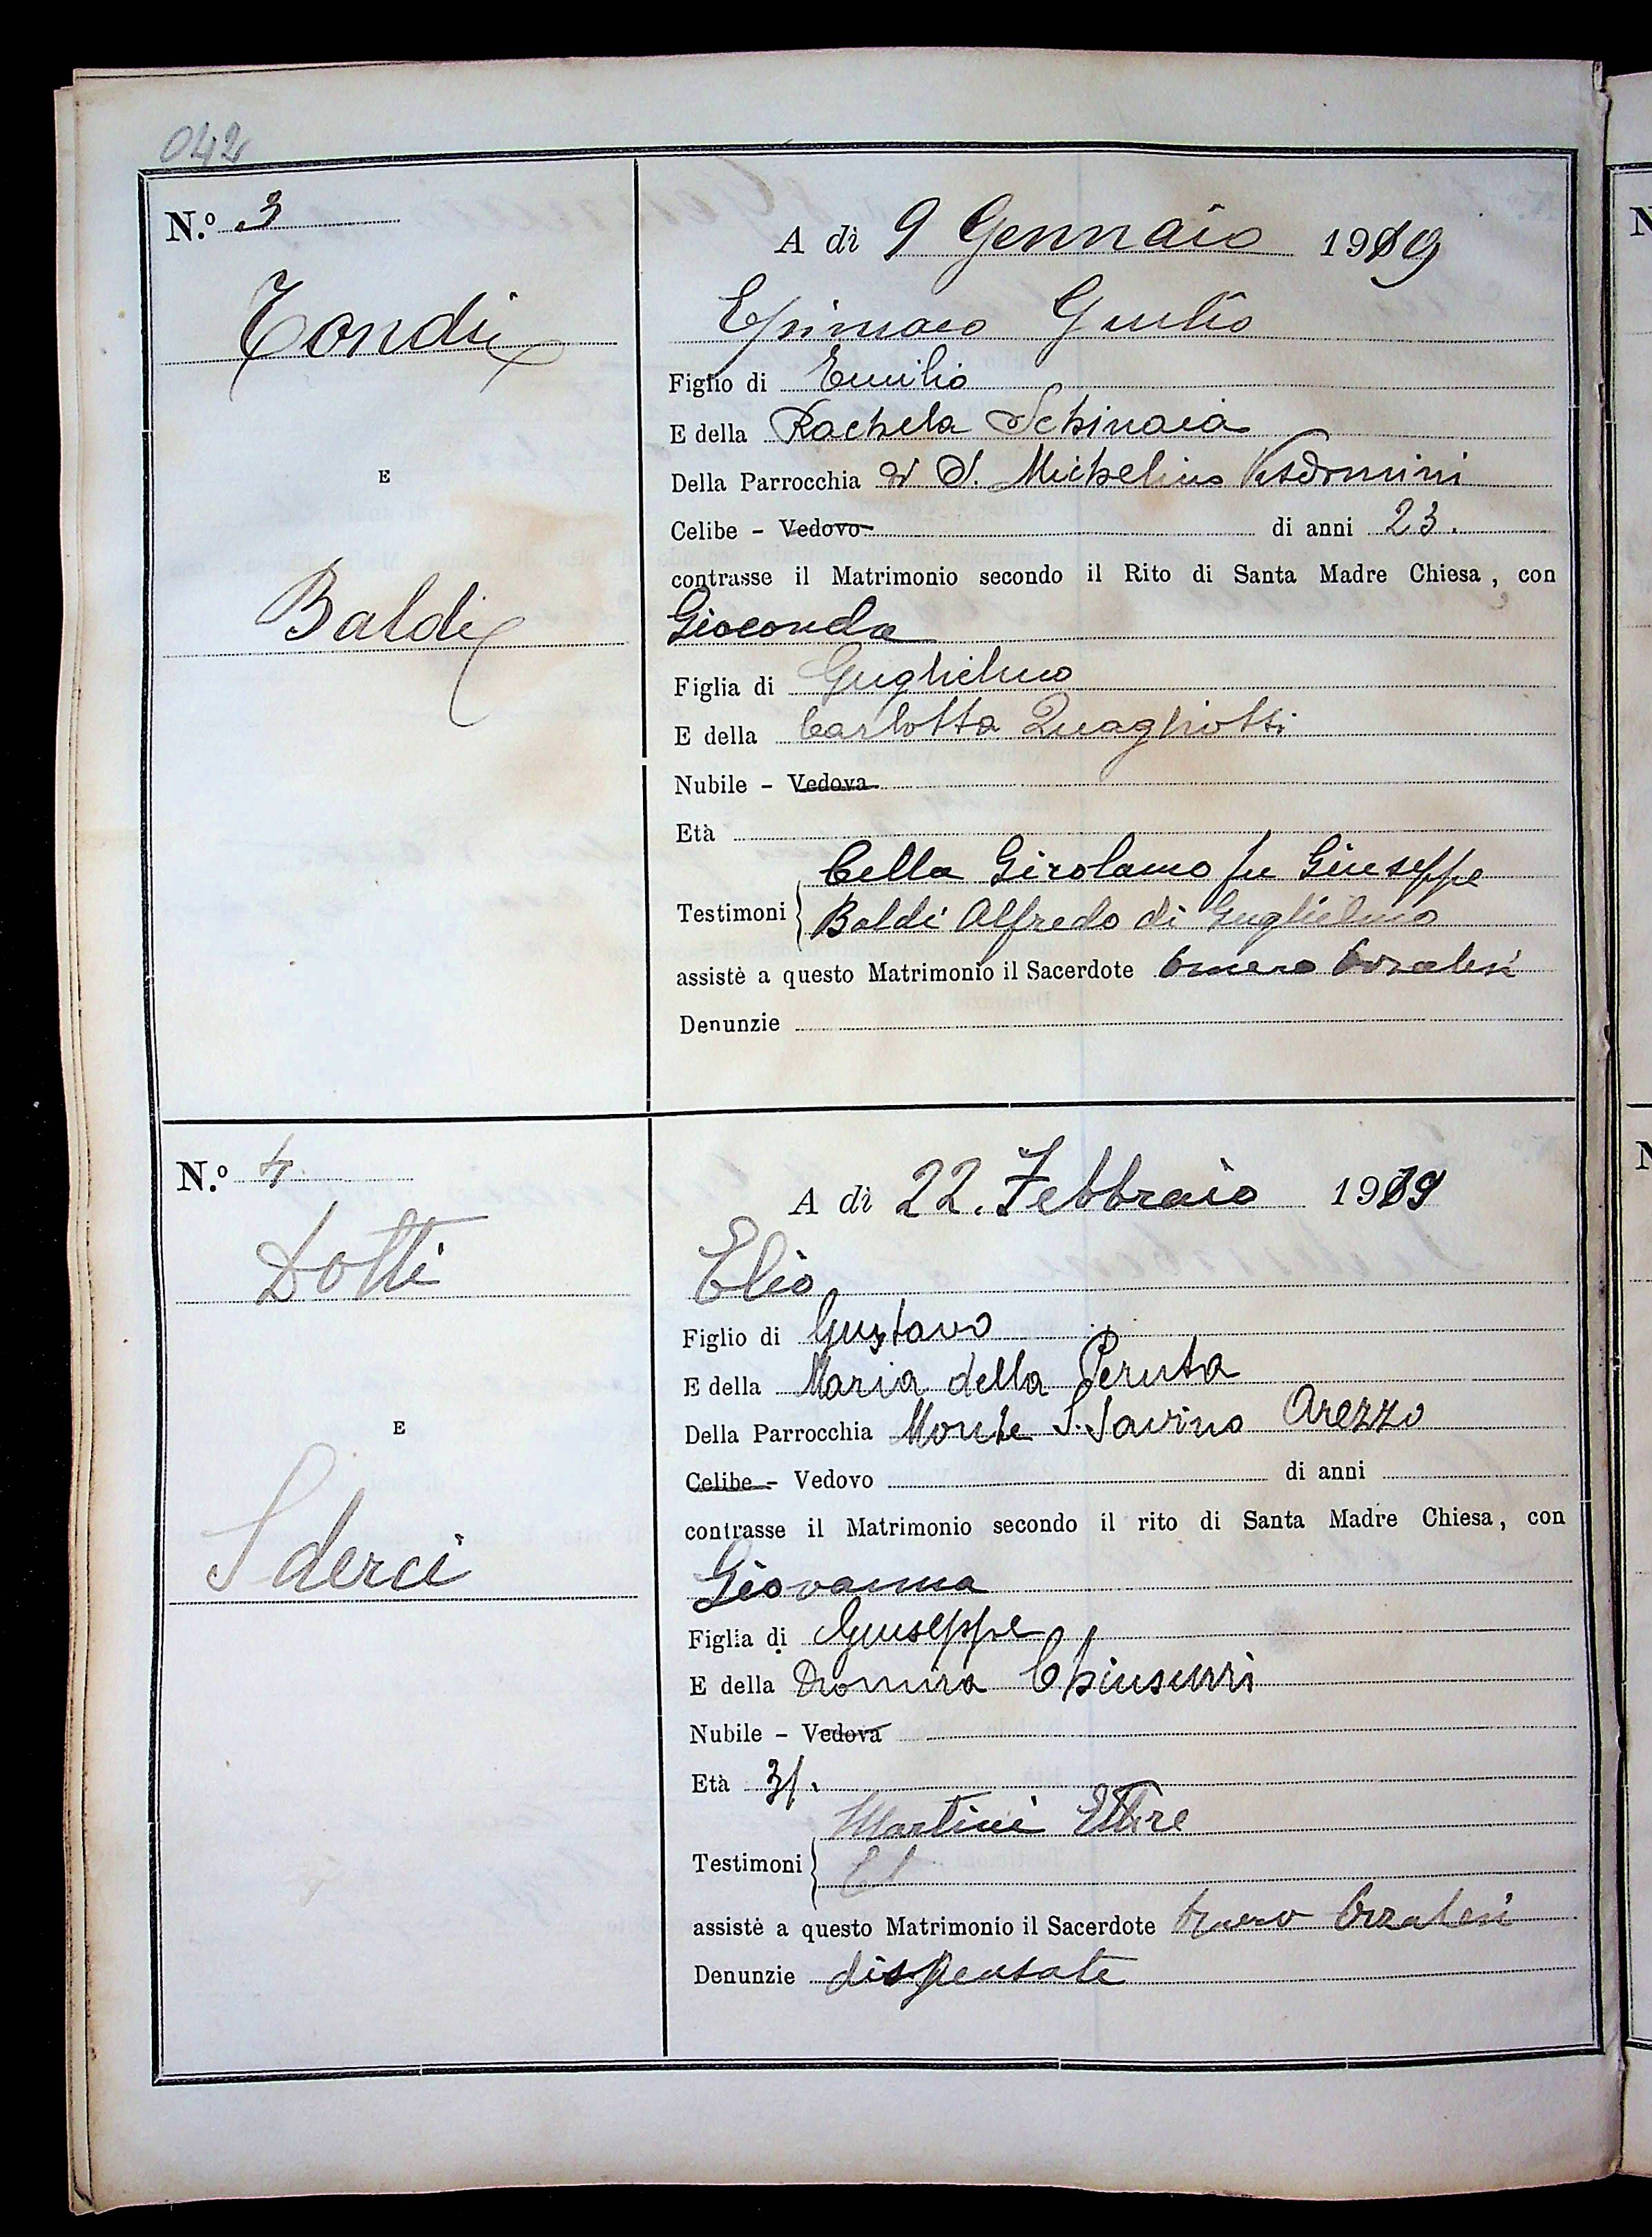 042
N.º 3
Tondi
E
Baldi
A dì 9 Gennaio 1919
Epimaco Giulio
Figlio di Emilio
E della Rachela Schinaia
Della Parrocchia di S. Michelino Visdomini
Celibe - Vedovo di anni 23.
contrasse il Matrimonio secondo il Rito di Santa Madre Chiesa, con
Gioconda
Figlia di Guglielmo
E della Carlotta Quagliotti
Nubile - Vedova
Età
Cella Girolamo fu Giuseppe
Testimoni
Baldi Alfredo di Guglielmo
assistè a questo Matrimonio il Sacerdote
Denunzie
N.º 4
Dotti
E
Sderci
A dì 22. Febbraio 1919
Elio
Figlio di Gustavo
E della Maria della Peruta
Della Parrocchia Monte S. Savino Arezzo
Celibe - Vedovo di anni
contrasse il Matrimonio secondo il rito di Santa Madre Chiesa, con
Giovanna
Figlia di Giuseppe
E della
Nubile - Vedova
Età 31.
Martini Ettore
Testimoni
assistè a questo Matrimonio il Sacerdote
Denunzie dispensate